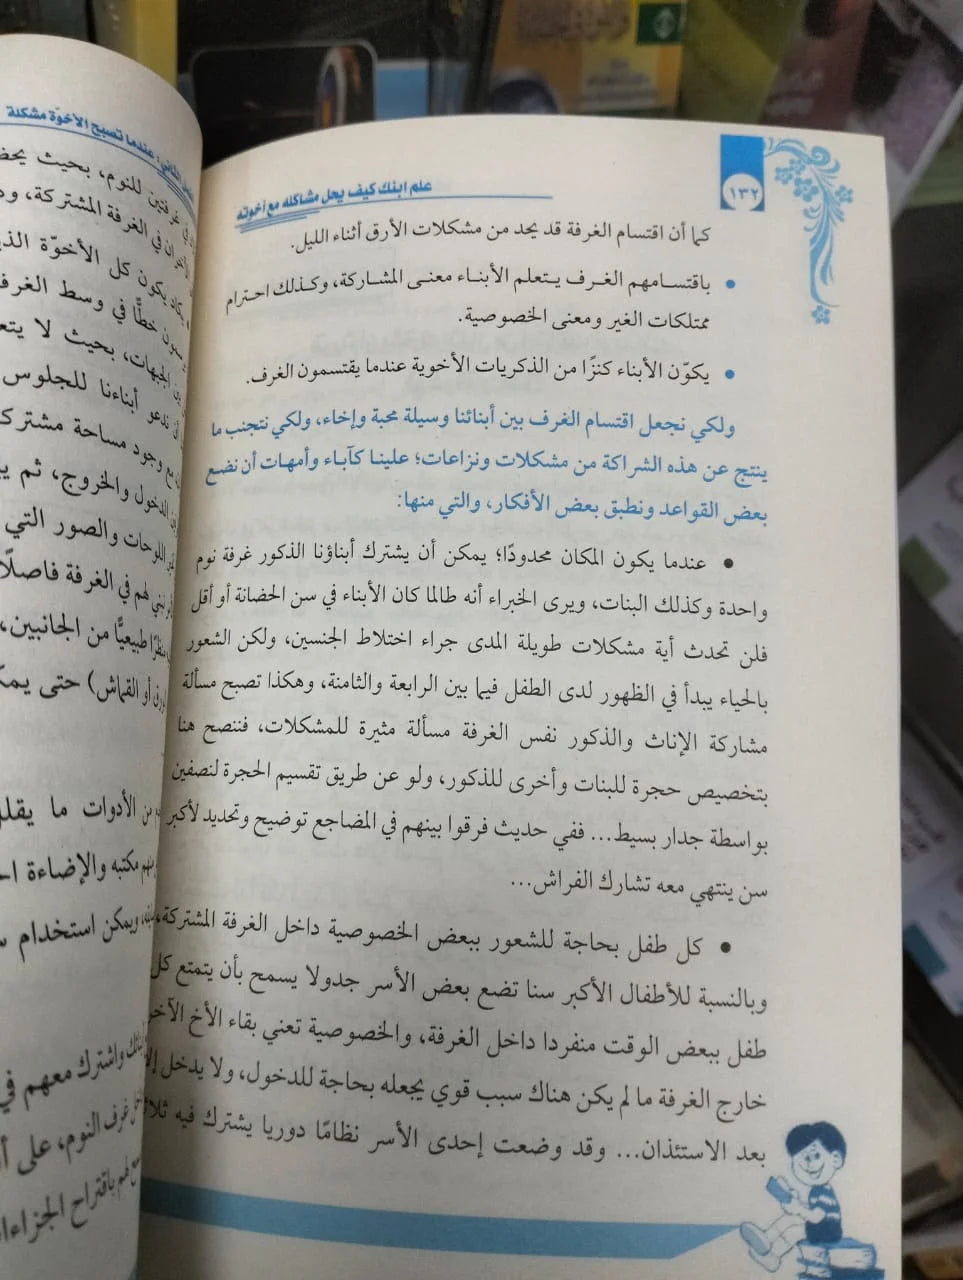 ١٣٢
علم ابنك كيف يحل مشاكله مع أخوته
كما أن اقتسام الغرفة قد يحد من مشكلات الأرق أثناء الليل.
• باقتسامهم الغرف يتعلم الأبناء معنى المشاركة، وكذلك احترام
ممتلكات الغير ومعنى الخصوصية.
• يكوّن الأبناء كنزًا من الذكريات الأخوية عندما يقتسمون الغرف.
ولكي نجعل اقتسام الغرف بين أبنائنا وسيلة محبة وإخاء، ولكي نتجنب ما
ينتج عن هذه الشراكة من مشكلات ونزاعات؛ علينا كآباء وأمهات أن نضع
بعض القواعد ونطبق بعض الأفكار، والتي منها:
• عندما يكون المكان محدودًا؛ يمكن أن يشترك أبناؤنا الذكور غرفة نوم
واحدة وكذلك البنات، ويرى الخبراء أنه طالما كان الأبناء في سن الحضانة أو أقل
فلن تحدث أية مشكلات طويلة المدى جراء اختلاط الجنسين، ولكن الشعور
بالحياء يبدأ في الظهور لدى الطفل فيما بين الرابعة والثامنة، وهكذا تصبح مسألة
مشاركة الإناث والذكور نفس الغرفة مسألة مثيرة للمشكلات، فننصح هنا
بتخصيص حجرة للبنات وأخرى للذكور، ولو عن طريق تقسيم الحجرة لنصفين
بواسطة جدار بسيط... ففي حديث فرقوا بينهم في المضاجع توضيح وتحديد لأكبر
سن ينتهي معه تشارك الفراش...
• كل طفل بحاجة للشعور ببعض الخصوصية داخل الغرفة المشتركة
وبالنسبة للأطفال الأكبر سنا تضع بعض الأسر جدولا يسمح بأن يتمتع كل
طفل ببعض الوقت منفردا داخل الغرفة، والخصوصية تعني بقاء الأخ الآخر
خارج الغرفة ما لم يكن هناك سبب قوي يجعله بحاجة للدخول، ولا يدخل
بعد الاستئذان... وقد وضعت إحدى الأسر نظامًا دوريا يشترك فيه
عندما تصبح الأخوّة مشكلة
للنوم، بحيث
في الغرفة المشتركة،
يكون كل الأخوّة
خطًّا في وسط
الجبهات، بحيث لا
ندعو أبناءنا للجلوس
مع وجود مساحة
الدخول والخروج، ثم
اللوحات والصور التي
لهم في الغرفة فاصلًا
طبيعيًّا من الجانبين،
أو القماش) حتى
الأدوات ما يقلل
مكتبه والإضاءة
ويمكن استخدام
واشترك معهم في
غرف النوم، على
باقتراح